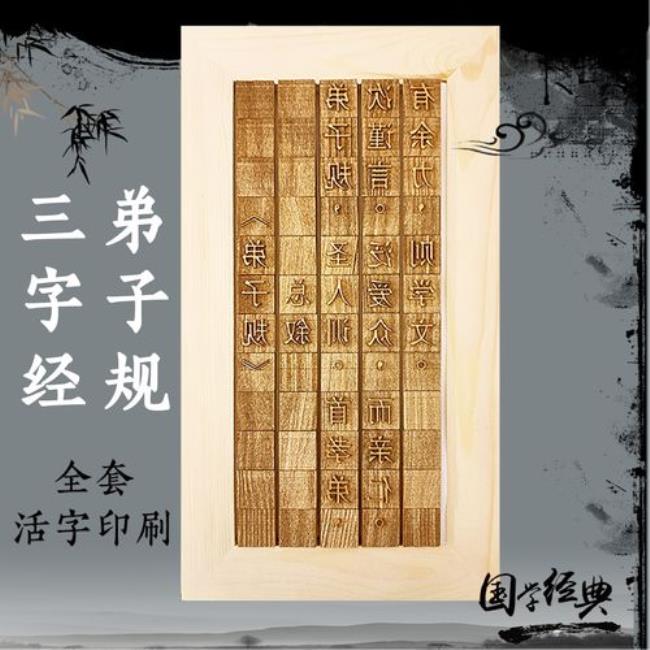 弟子规
三字经
全套
活字印刷
《弟子规》
总叙
弟子规，圣人训。首孝弟。
次谨言。泛爱众，而亲仁。
有余力，则学文。
国学经典